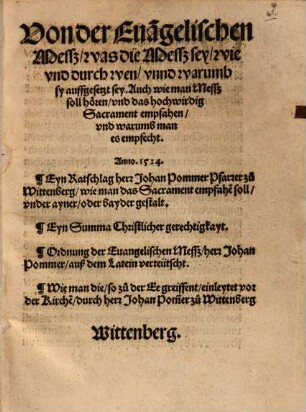 Von der Euãgelischen
Messz/was die Messz sey/wie
vnd durch wen/ vnnd warumb
sy auffgesetzt sey. Auch wie man Messz
soll hören/vnd das hochwirdig
Sacrament empfahen/
vnd warumb man
es empfecht.
Anno. 1524.
¶ Eyn Ratschlag herr Johan Pommer Pfarrer zů
Wittenberg/ wie man das Sacrament empfahẽ soll/
vnder ayner/oder bayder gestalt.
¶ Eyn Summa Christlicher gerechtigkayt.
¶ Ordnung der Euangelischen Messz/herr Johan
Pommer/auß dem Latein verteütscht.
¶ Wie man die/so zů der Ee greiffent/einleytet vor
der Kirchẽ/durch herr Johan Pom̃er zů Wittenberg
Wittenberg.